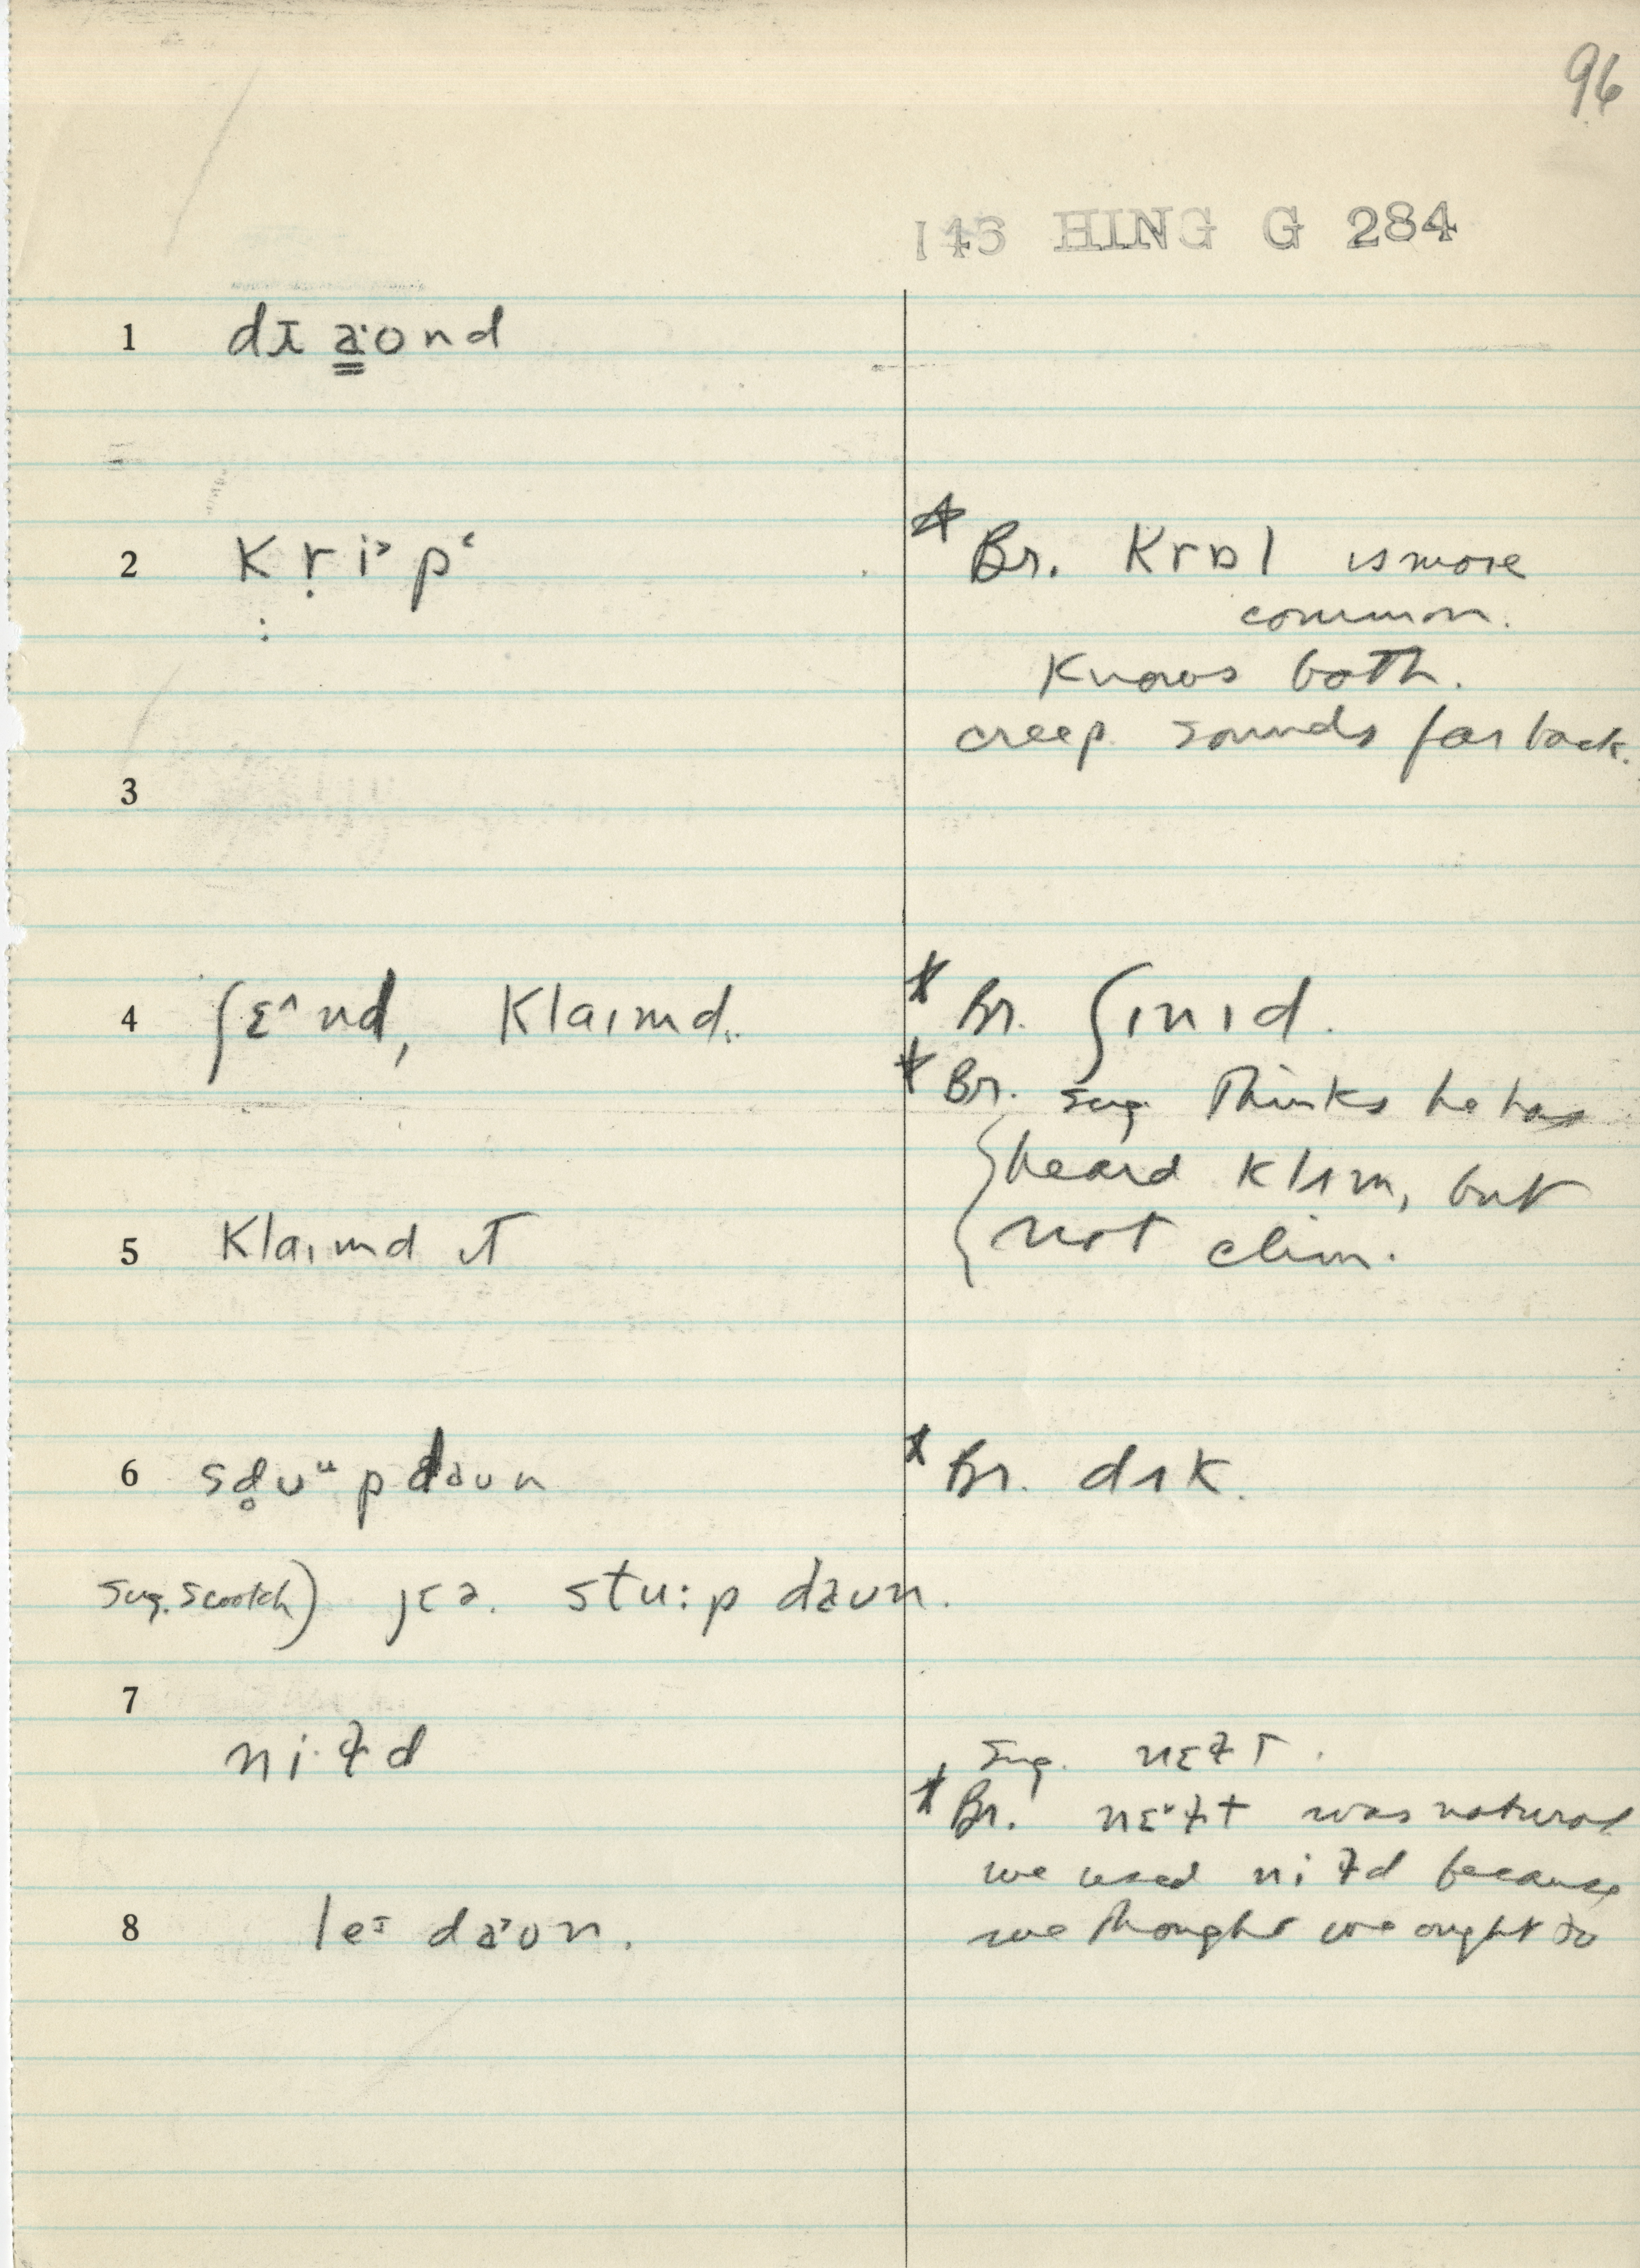 96
143 HING G 284
1 dɪ a̳ˑʊnd
2 kṛi˃pʻ
* Br. krɒl is more
common.
Knows both.
creep sounds far back.
3
4 ʃɛ^nd, klaɪmd.
* Br. ʃɪnɪd.
* Br. sug. Thinks he has
heard klɪm, but
not clim.
5 klaɪmd ɪt
6 sd̥ʊᵘp daʊn
* Br. dɪk.
sug. scootch) jɛə. stu:p daʊn.
7
niˑɫd
sug. nɛɫt.
* Br. nɛ˅ɫt was natural
we used niɫd because
we thought we ought to
8 leᶦ da˃ʊn.